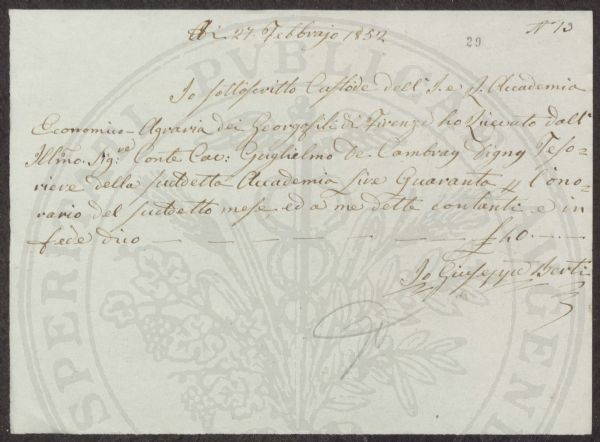 Adi 27. Febbrajo 1852
N° 13
29
Io sottoscritto Custode dell' I. e R. Accademia
Economico-Agraria dei Georgofili di Firenze ho ricevuto dall'
Illmo. Sigre. Conte Cav: Guglielmo De Cambray Digny Teso-
riere della suddetta Accademia Lire Quaranta p. l'ono-
rario del suddetto mese ed a me dette contanti e in
fede dico — — — — — — — £ 40. —
Io Giuseppe Berti
PUBLICA